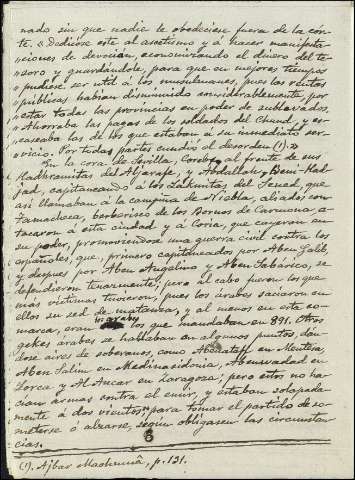 nado sin que nadie le obedeciese fuera de la cor-
te, "dedicóse este al ascetismo y á hacer manifesta
ciones de devoción, economizando el dinero del te-
soro y guardándole, para que en mejores tiempos
pudiese ser util á los musulmanes, pues las rentas
públicas habían disminuido considerablemente, por
estar todas las provincias en poder de sublevados.
Ahorraba las pagas de los soldados del Chund, y es-
caseaba las de los que estaban á su inmediato ser-
vicio. Por todas partes cundió el desorden (1)."
En la cora de Sevilla, Coreb, al frente de sus
Hadhramitas del Aljarafe, y Abdallah Beni-Had-
jad, capitaneando á los Lakmitas del Sened, que
así llamaban á la campiña de Niebla, aliados con
Tamachecca, berberisco de los Bornos de Carmona, a-
tacaron á esta ciudad y á Coria, que cayeron en
su poder, promoviéndose una guerra civil contra los
españoles, que, primero capitaneados por Aben Galib,
y despues por Aben Angelino y Aben Sabárico, se
defendieron tenazmente; pero al cabo fueron los que
más víctimas tuvieron, pues los árabes saciaron en
ellos su sed de matanza, y al menos en esta co-
marca, eran árabes los que mandaban en 891. Otros
jekes árabes se hallaban en algunos puntos, dán-
dose aires de soberanos, como Abenataff en Mentera,
Aben Salin en Medinasidonia, Abenwadad en
Lorca y Al Ancar en Zaragoza; pero estos no ha-
cían armas contra el emir, y estaban solapada-
mente á dos vientos para tomar el partido de so-
meterse ó alzarse, según obligasen las circunstan
cias.
(1). Ajbar Machmuâ, p. 131.